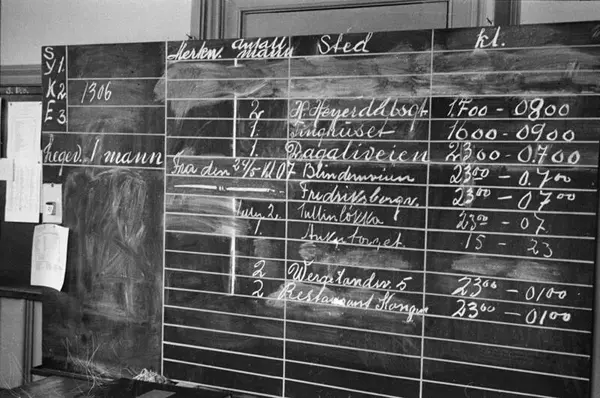 Merkn. antall mann Sted kl.
S
Y 1.
K 2 1306
E 3
Legev. 1 mann
2 H. Heyerdahlsgt 17.00 - 08.00
1. Tinghuset 16.00 - 09.00
1. Dagaliveien 23.00 - 0.7.00
Fra den 24/5 kl. 07 Blindernveien 23.00 - 0.7.00
Fredriksbergv. 23.00 - 0.7.00
2. Tullinløkka 23.00 - 07.
1. Ankertorget 15 - 23
2 Wergelandsv. 5 23.00 - 01.00
2 Restaurant Kongen 23.00 - 01.00